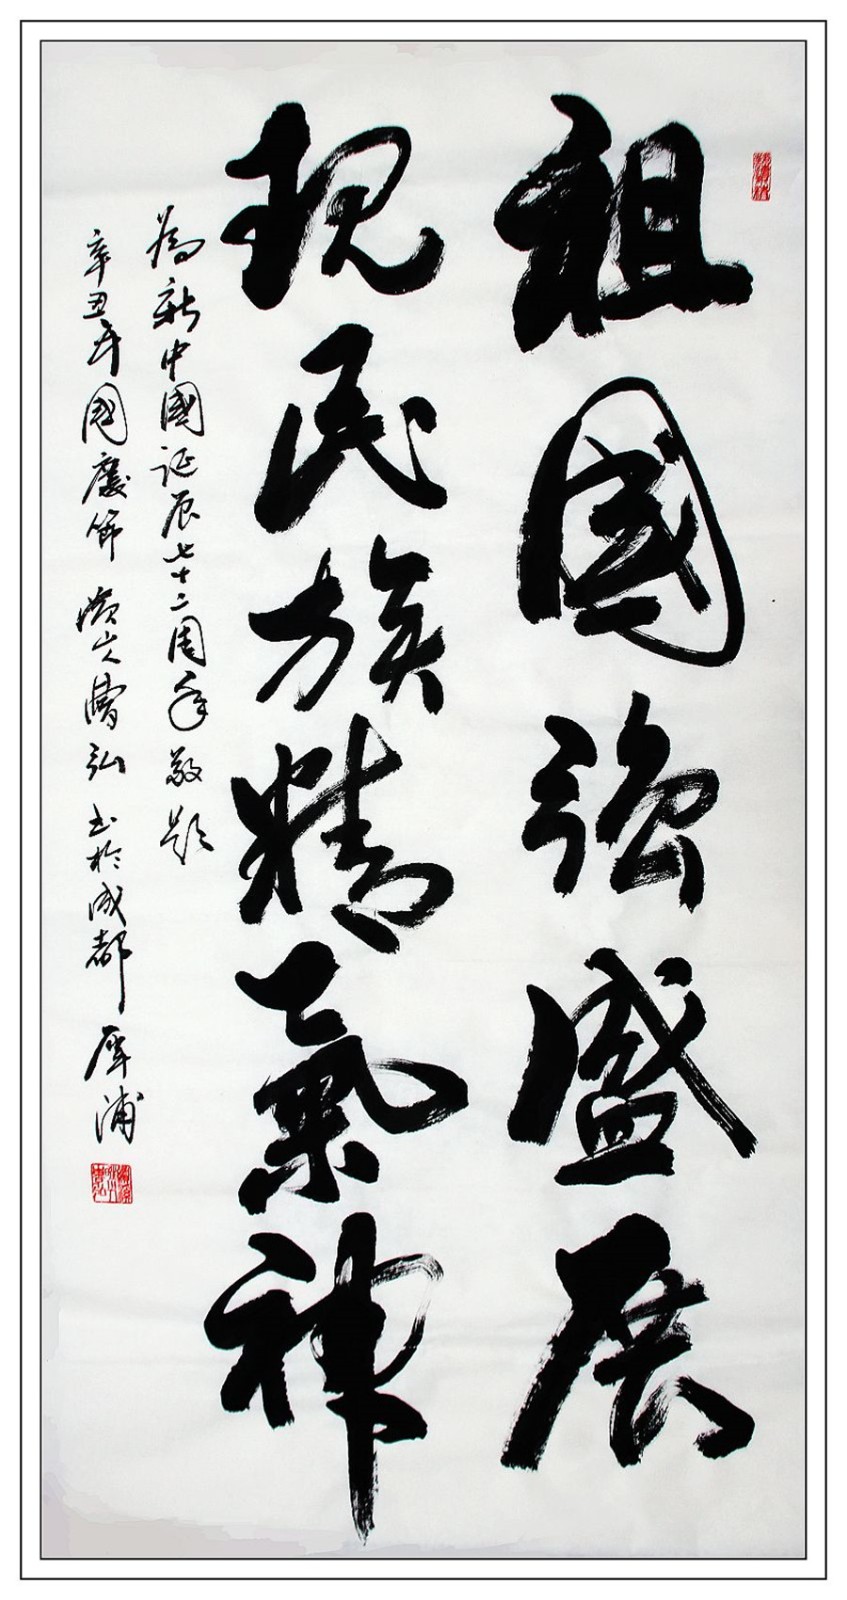 祖國強盛展
現民族精氣神
為新中國誕辰七十二周年敬題
辛丑年國慶節 弘 書於成都犀浦